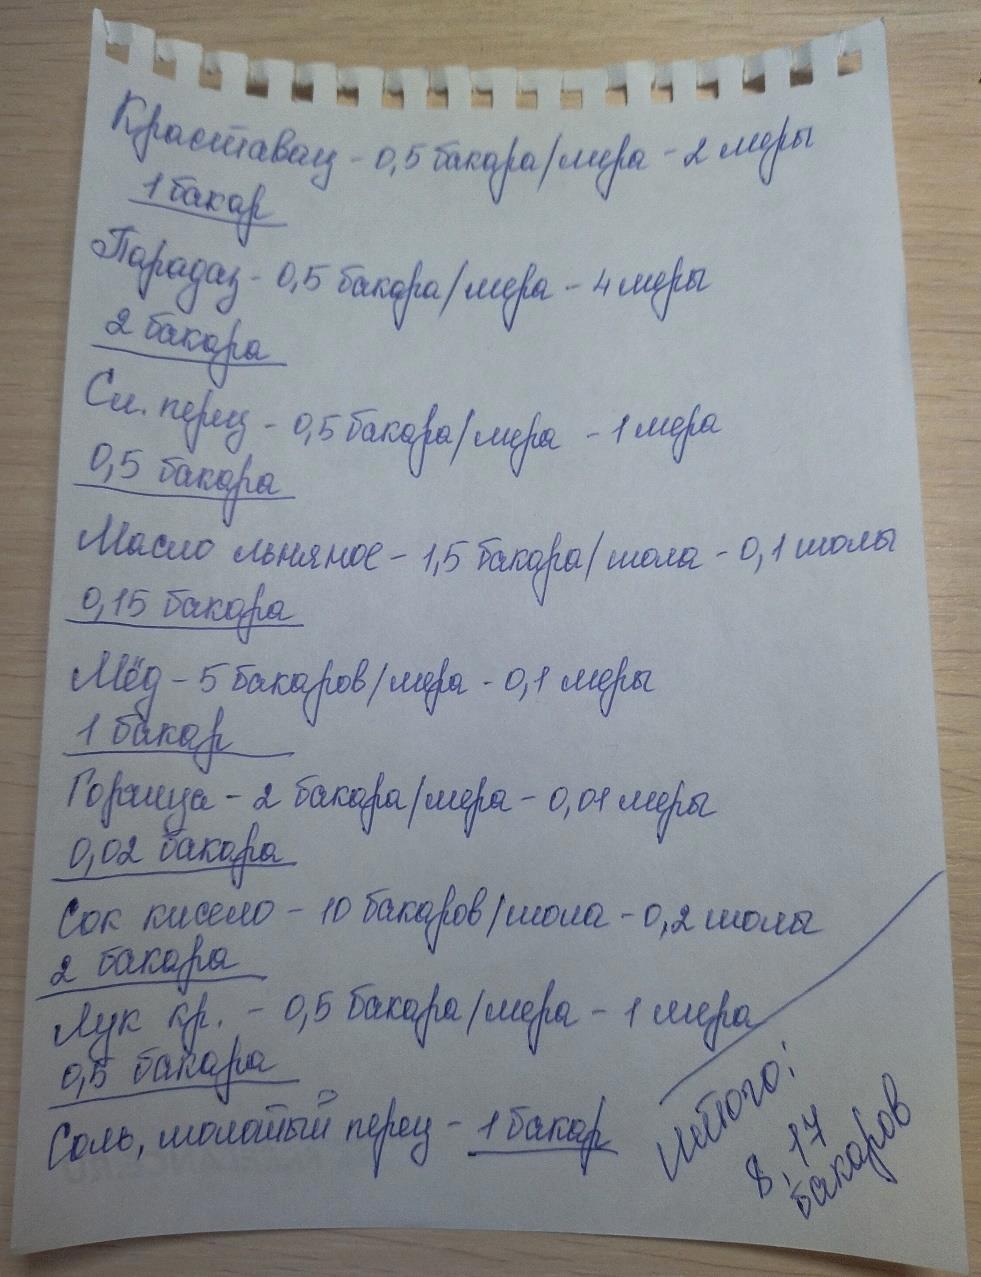 Краставац - 0,5 бакара/мера - 2 меры
1 бакар
Парадаз - 0,5 бакара/мера - 4 меры
2 бакара
Сл. перец - 0,5 бакара/мера - 1 мера
0,5 бакара
Масло льняное - 1,5 бакара/шола - 0,1 шолы
0,15 бакара
Мёд - 5 бакаров/мера - 0,1 меры
1 бакар
Горчица - 2 бакара/мера - 0,01 меры
0,02 бакара
Сок кисело - 10 бакаров/шола - 0,2 шолы
2 бакара
Лук кр. - 0,5 бакара/мера - 1 мера
0,5 бакара
Соль, молотый перец - 1 бакар
Итого:
8,17
бакаров